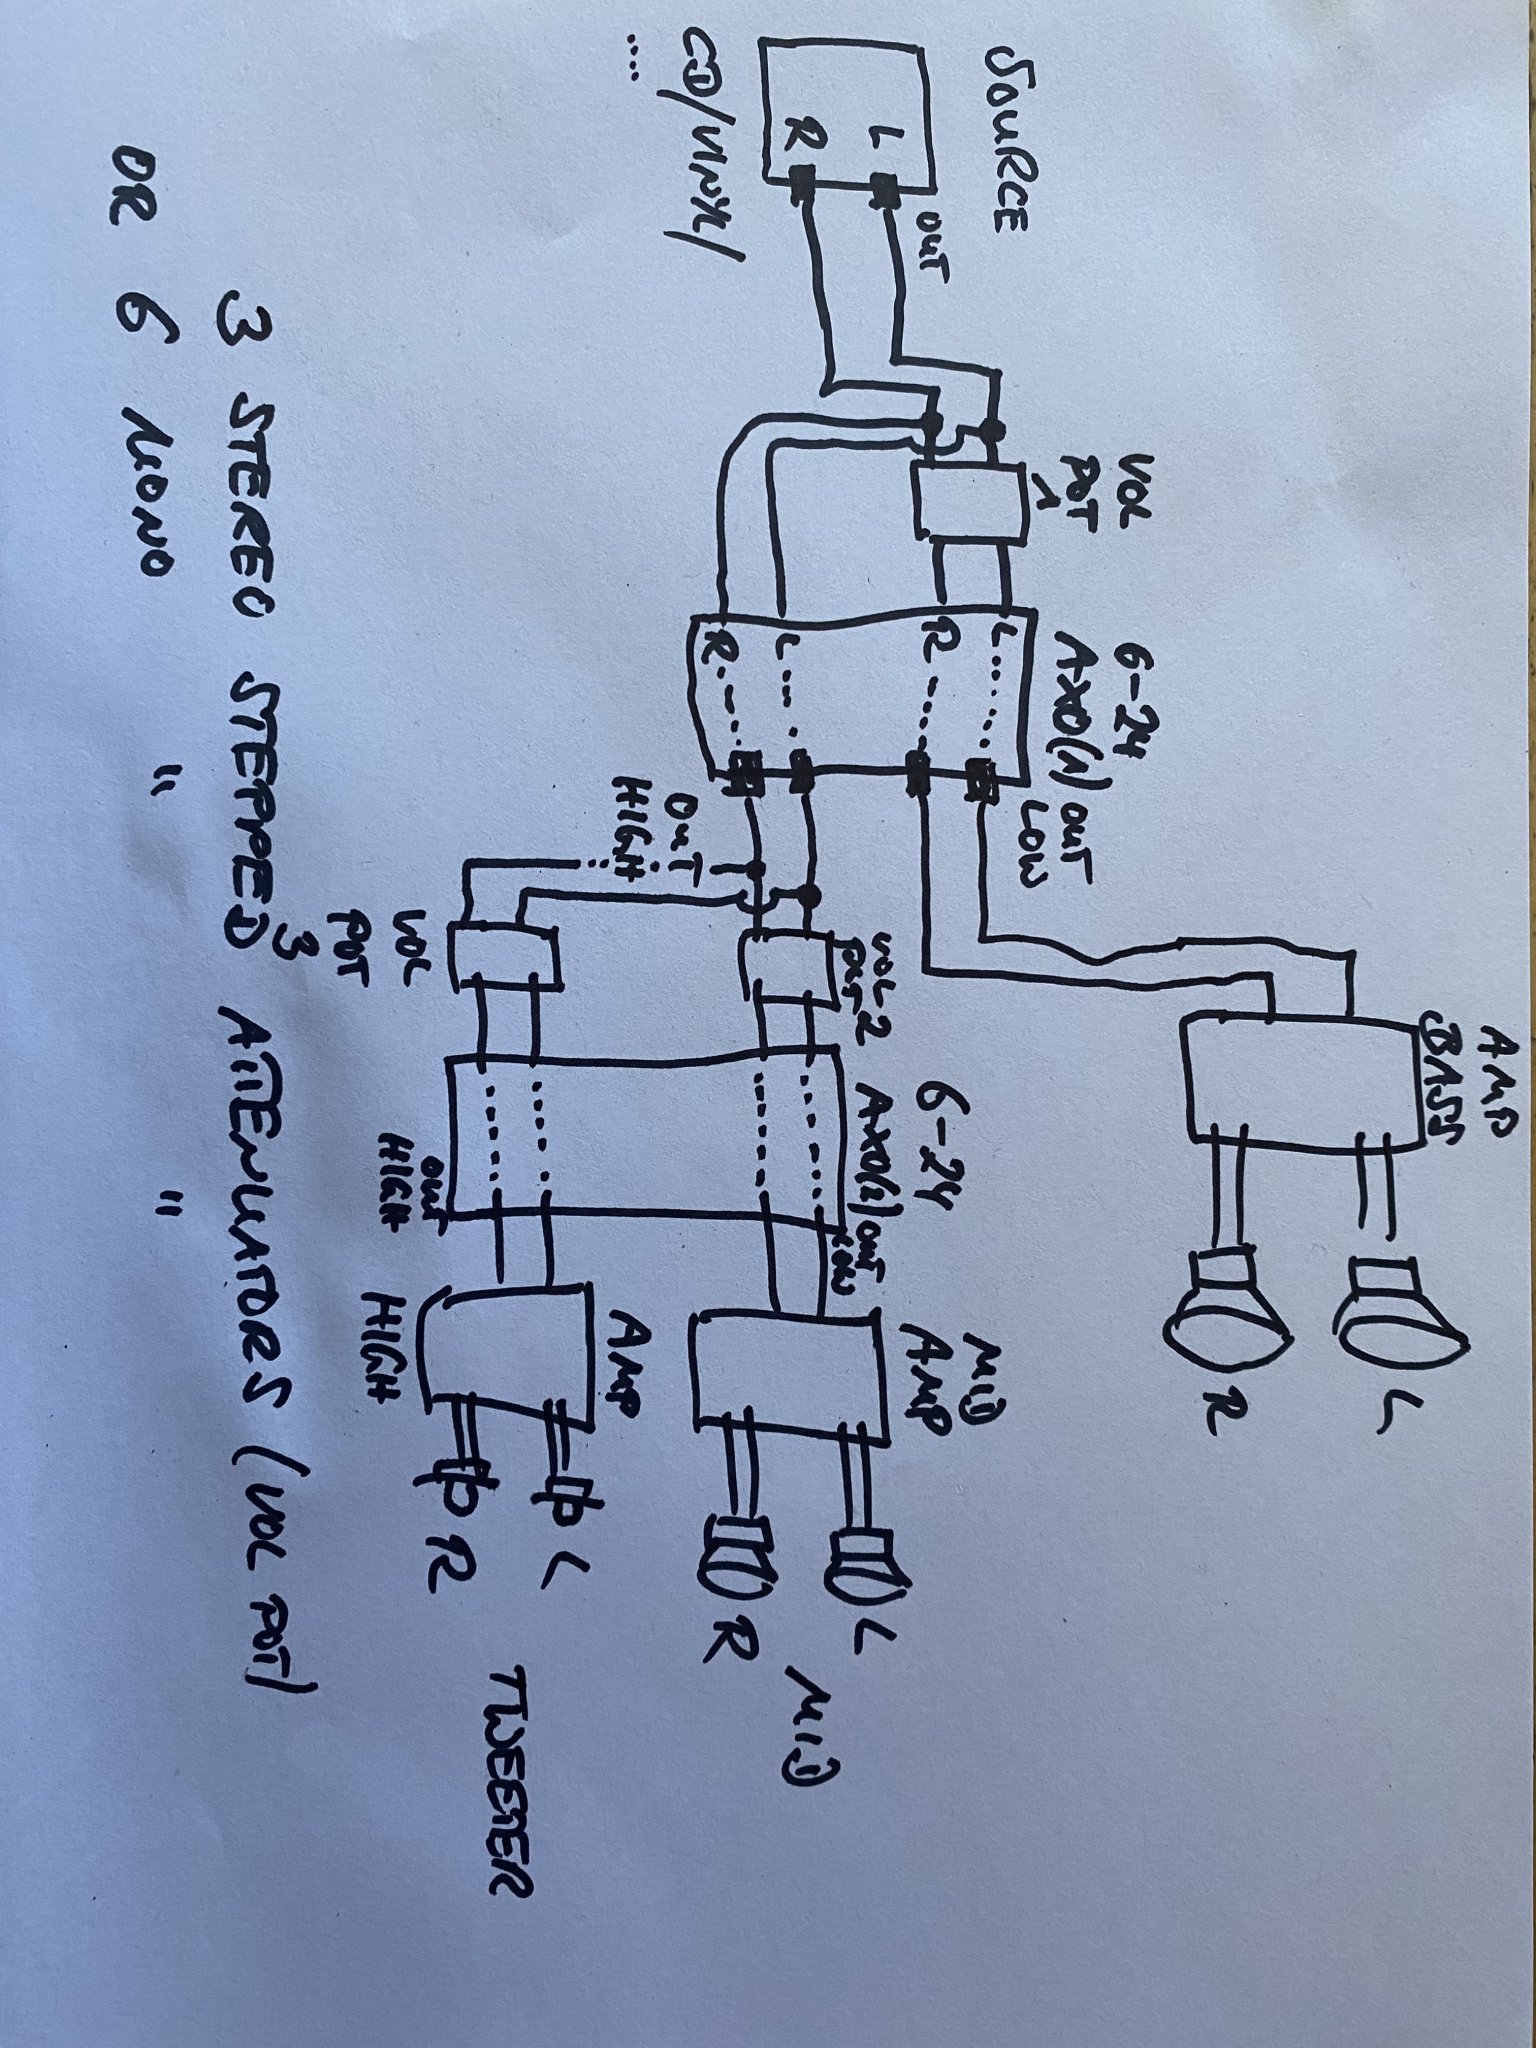 SOURCE
OUT
L
R
CD/VINYL/
....
VOL
POT
1
6-24
AXO(1)
OUT
LOW
L
R
L
R
OUT
HIGH
AMP
BASS
L
R
VOL
POT 2
VOL
POT
3
6-24
AXO(2)
OUT
LOW
OUT
HIGH
MID
AMP
L
R
MID
AMP
HIGH
L
R
TWEETER
3 STEREO STEPPED ATTENUATORS (VOL POT)
OR 6 MONO " "